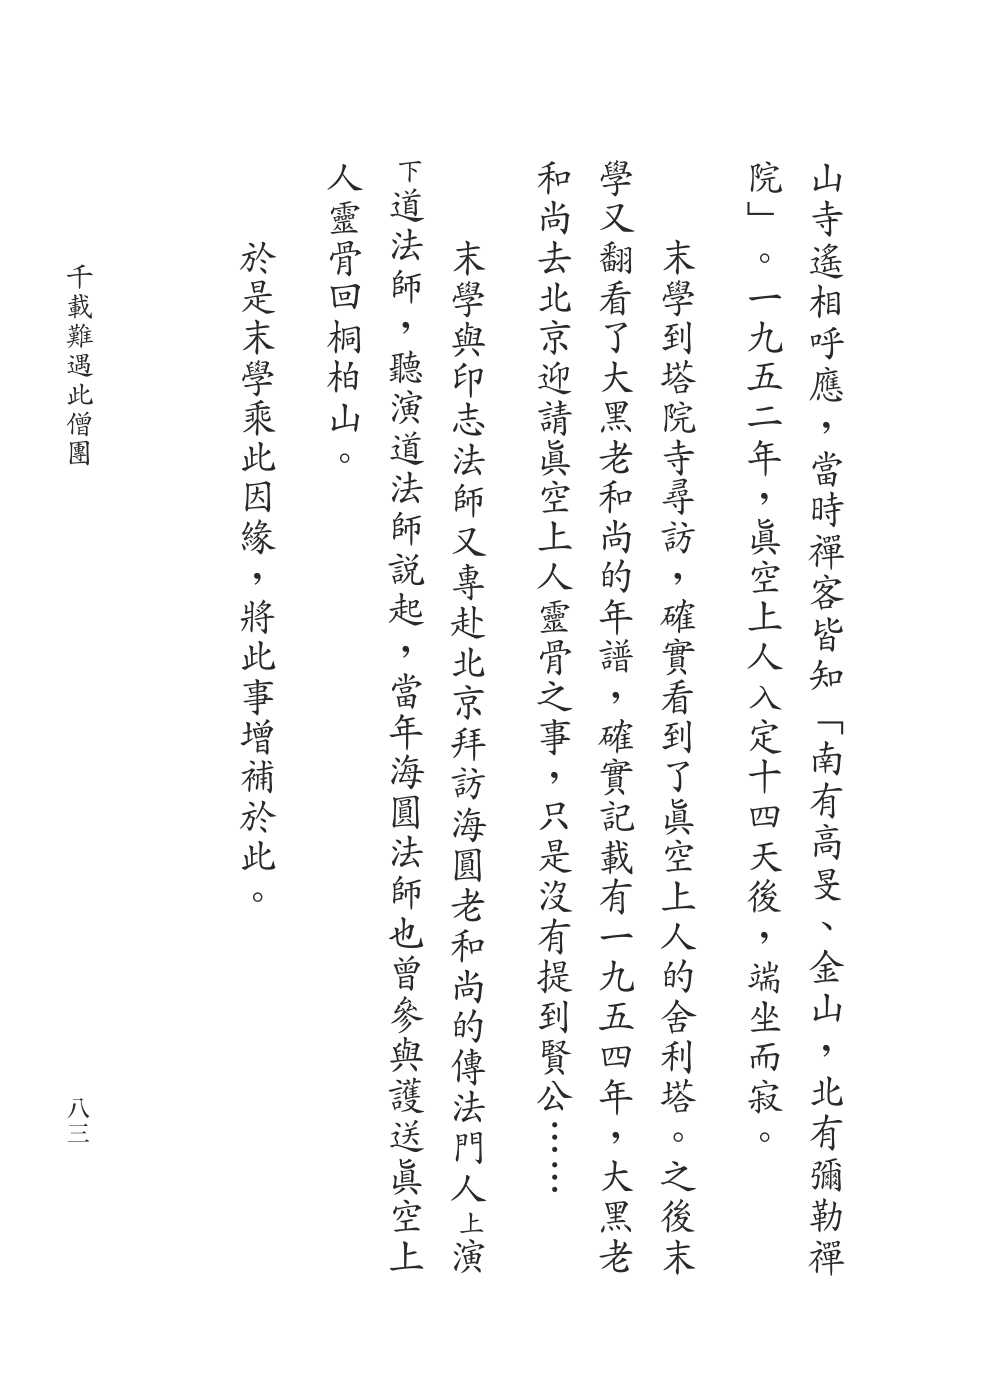 山寺遙相呼應，當時禪客皆知「南有高旻、金山，北有彌勒禪
院」。一九五二年，眞空上人入定十四天後，端坐而寂。
末學到塔院寺尋訪，確實看到了眞空上人的舍利塔。之後末
學又翻看了大黑老和尚的年譜，確實記載有一九五四年，大黑老
和尚去北京迎請眞空上人靈骨之事，只是沒有提到賢公……
末學與印志法師又專赴北京拜訪海圓老和尚的傳法門人上演
下道法師，聽演道法師説起，當年海圓法師也曾參與護送眞空上
人靈骨回桐柏山。
於是末學乘此因緣，將此事增補於此。
千載難遇此僧團
八三